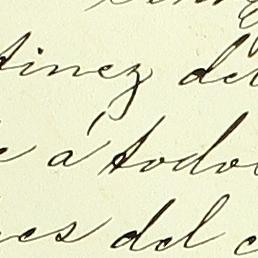 tinez del
e á todo
es del c